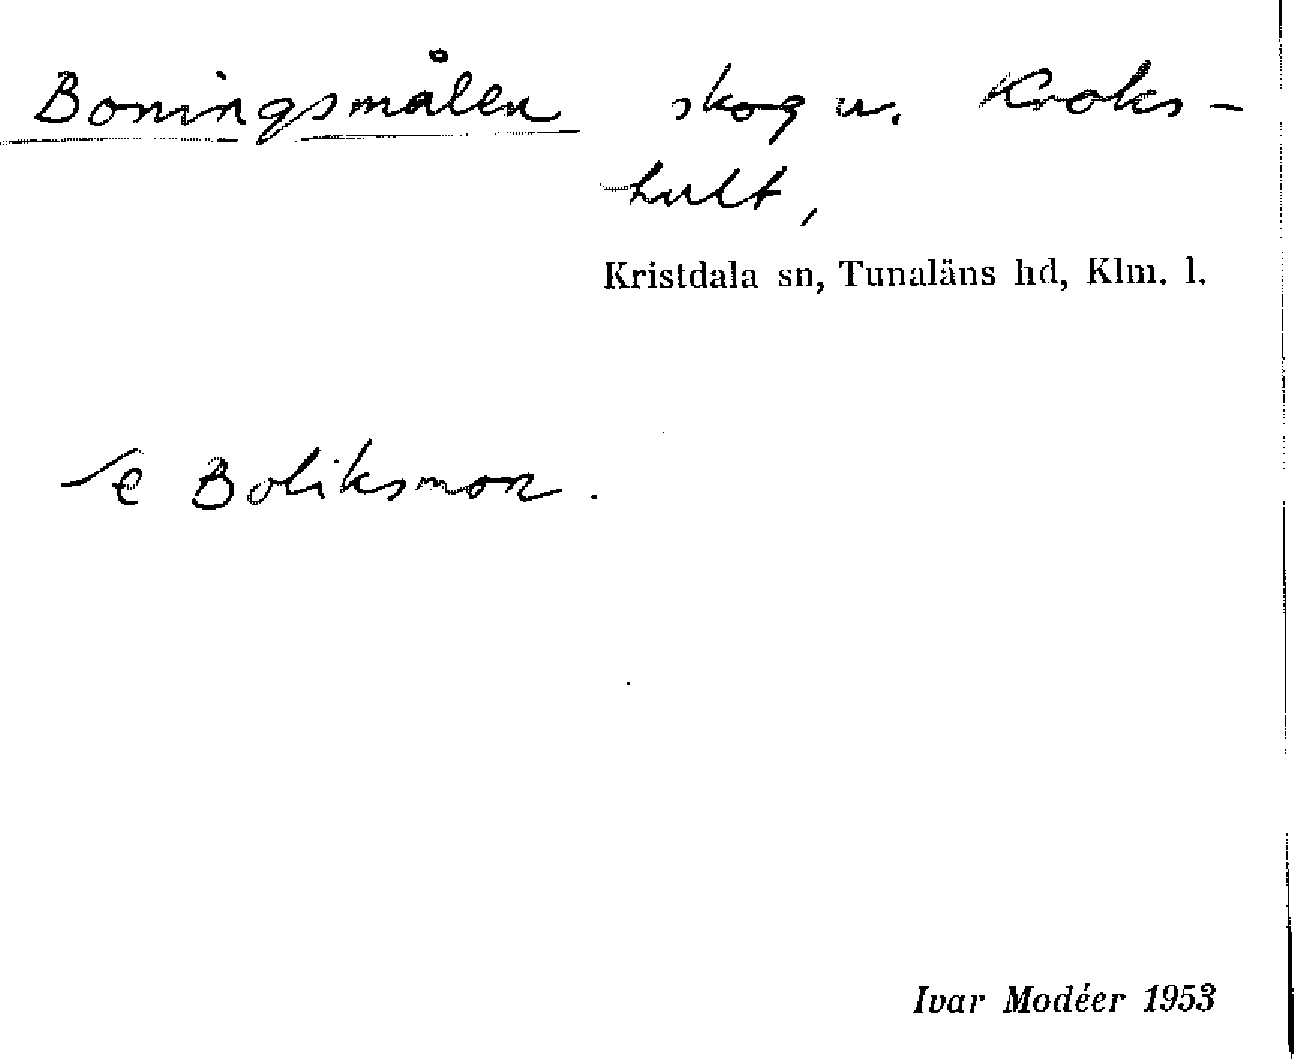 Boningsmålen skog u. Kroks-
hult,
Kristdala sn, Tunaläns hd, Klm. l.
Se Boliksmon.
Ivar Modéer 1953